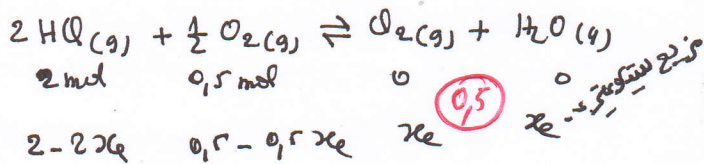 2 HCl(g) + ½ O₂(g) ⇌ Cl₂(g) + H₂O(g)
2 mol 0,5 mol 0 0
0,5
2 - 2xₑ 0,5 - 0,5 xₑ xₑ xₑ
مزيج ستوكيومتري